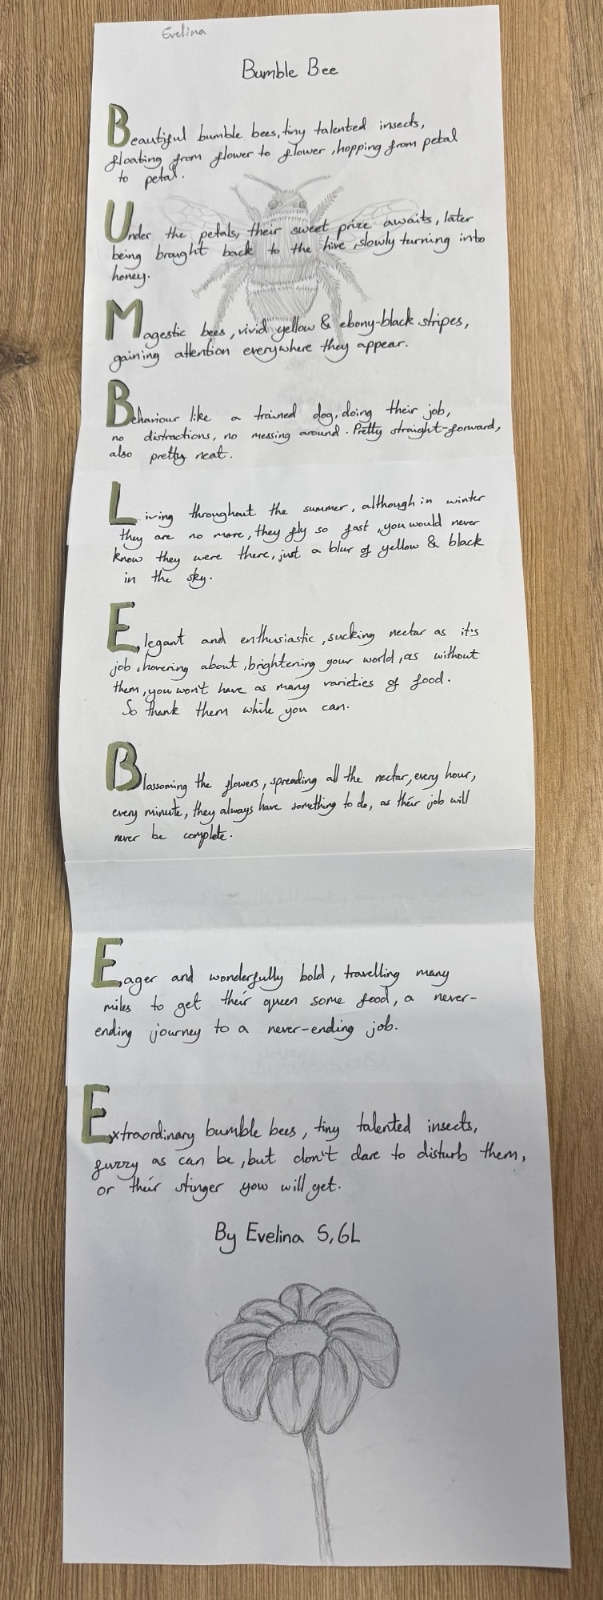 Evelina
Bumble Bee
Beautiful bumble bees, tiny talented insects,
floating from flower to flower, hopping from petal
to petal.
Under the petals, their sweet prize awaits, later
being brought back to the hive, slowly turning into
honey.
Magestic bees, vivid yellow & ebony-black stripes,
gaining attention everywhere they appear.
Behaviour like a trained dog, doing their job,
no distractions, no messing around. Pretty straight-forward,
also pretty neat.
Living throughout the summer, although in winter
they are no more, they fly so fast, you would never
know they were there, just a blur of yellow & black
in the sky.
Elegant and enthusiastic, sucking nectar as it's
job, hovering about, brightening your world, as without
them, you won't have as many varieties of food.
So thank them while you can.
Blassoming the flowers, spreading all the nectar, every hour,
every minute, they always have something to do, as their job will
never be complete.
Eager and wonderfully bold, travelling many
miles to get their queen some food, a never-
ending journey to a never-ending job.
Extraordinary bumble bees, tiny talented insects,
furry as can be, but don't dare to disturb them,
or their stinger you will get.
By Evelina S, 6L